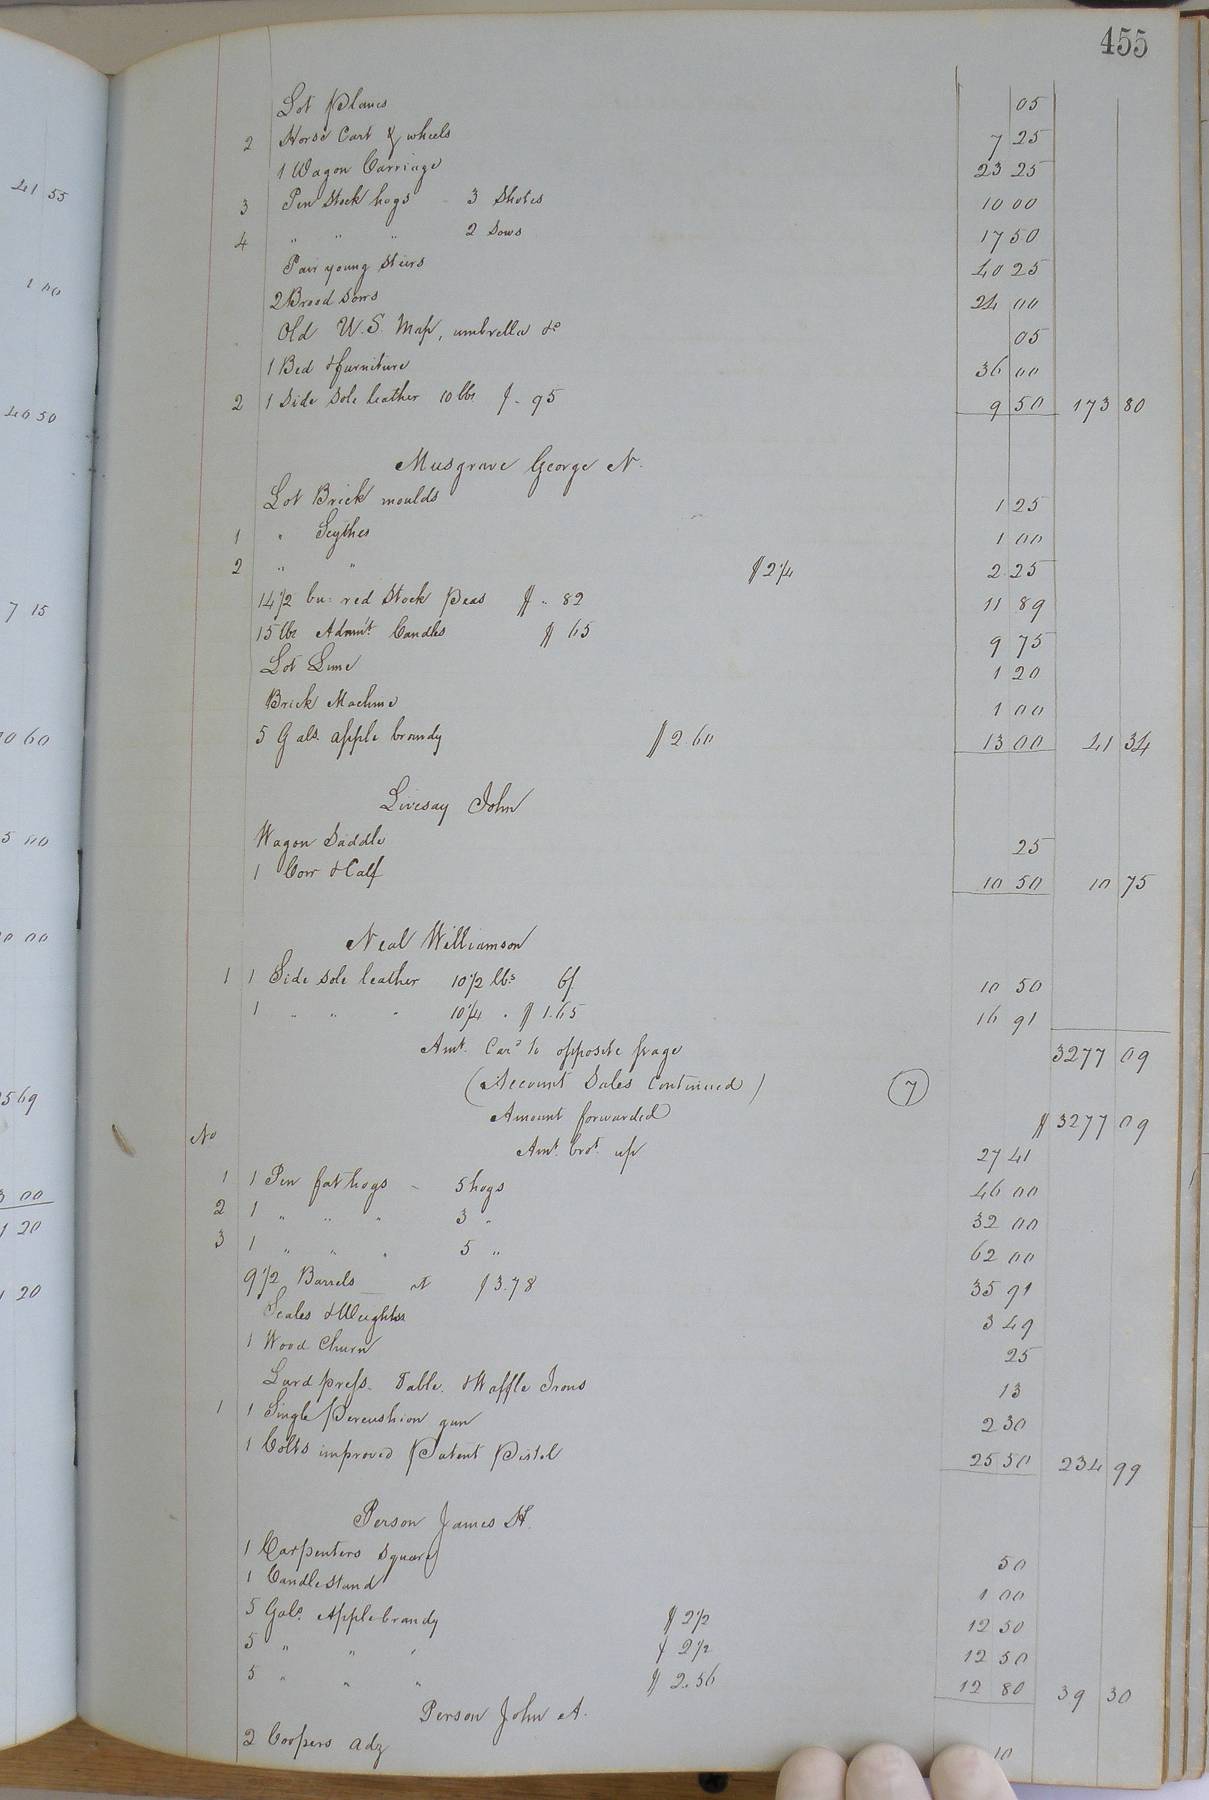 455
Lot Planes 05
2 Horse Cart & wheels 7 25
1 Wagon Carriage 23 25
3 Pen Stock hogs - 3 Shotes 10 00
4 " " " 2 Sows 17 50
Pair young Steers 40 25
2 Brood Sows 24 00
Old U.S. Map, umbrella &c 05
1 Bed & furniture 36 00
2 1 Side Sole leather 10 lbs $ . 95 9 50 173 80
Musgrave George N.
Lot Brick moulds 1 25
1 " Scythes 1 00
2 " " $ 2 1/4 2 25
14 1/2 bu. red Stock Peas $ .. 82 11 89
15 lbs Admt. Candles $ 65 9 75
Lot Lime 1 20
Brick Machine 1 00
5 Gals. apple brandy $ 2.60 13 00 41 34
Livesay John
Wagon Saddle 25
1 Cow & Calf 10 50 10 75
Neal Williamson
1 1 Side sole leather 10 1/2 lbs 10 50
1 " " " 10 1/4 . $ 1.65 16 91
Amt. Card to opposite page 3277 09
(Account Sales continued) 7
Amount forwarded $ 3277 09
No Amt. brot. up 27 41
1 1 Pen fat hogs - 5 hogs 46 00
2 1 " " " 3 " 32 00
3 1 " " " 5 " 62 00
9 1/2 Barrels at $ 3.78 35 91
Scales & Weights 3 49
1 Wood Churn 25
Lard press. Table. & Waffle Irons 13
1 1 Single percushion gun 2 30
1 Colts improved Patent Pistol 25 50 234 99
Person James H.
1 Carpenters square 50
1 Candlestand 1 00
5 Gals. Apple brandy $ 2 1/2 12 50
5 " " " $ 2 1/2 12 50
5 " " " $ 2.56 12 80 39 30
Person John A.
2 Coopers adz 10
41 55
1 00
40 50
7 15
0 60
5 00
0 00
569
3 00
1 20
1 20